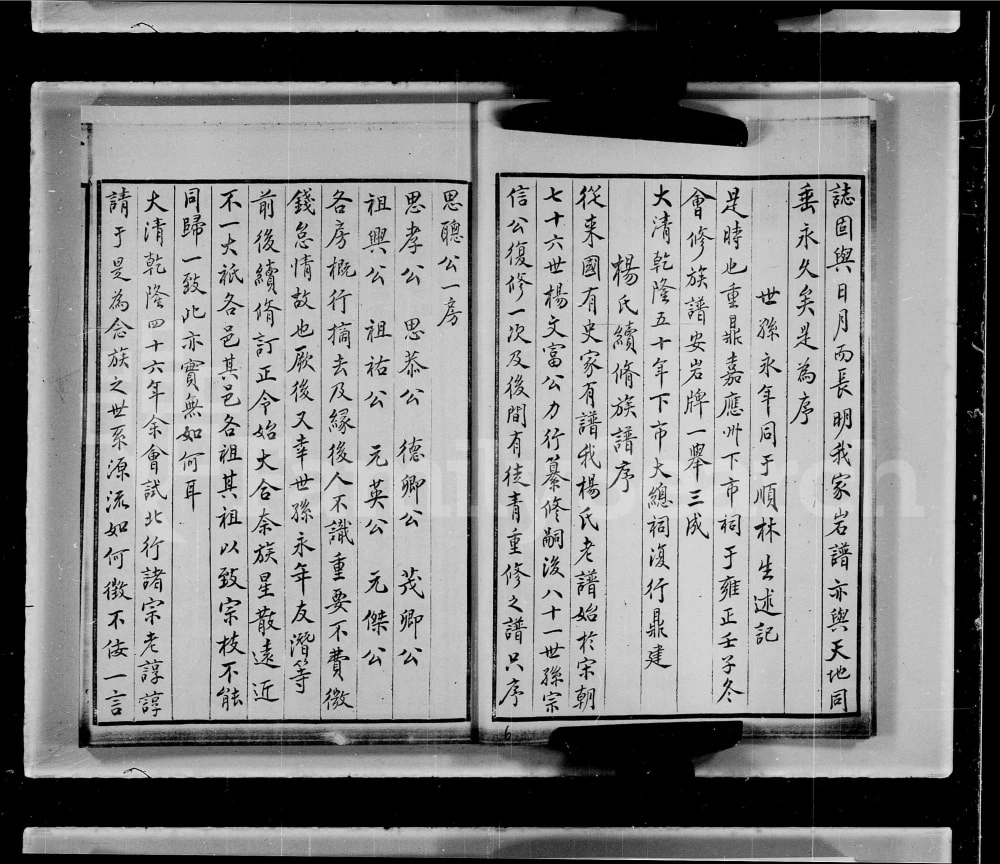 誌固與日月而長明我家岩譜亦與天地同
垂永久矣是為序
世孫永年同于順林生述記
是時也重鼎嘉應州下市祠于雍正壬子冬
會修族譜安岩牌一舉三成
大清乾隆五十年下市大總祠復行鼎建
楊氏續脩族譜序
從來國有史家有譜我楊氏老譜始於宋朝
七十六世楊文富公力行纂修嗣後八十一世孫宗
信公復修一次及後間有徒青重修之譜只序
思聰公一房
思孝公 思恭公 德卿公 茂卿公
祖興公 祖祐公 元英公 元傑公
各房概行摘去及緣後人不識重要不費徵
錢怠情故也厥後又幸世孫永年友潛等
前後續脩訂正令始大合奈族星散遠近
不一大祇各邑其邑各祖其祖以致宗枝不能
同歸一致此亦實無如何耳
大清乾隆四十六年余會試北行諸宗老諄諄
請于是為念族之世系源流如何徵不佞一言
6